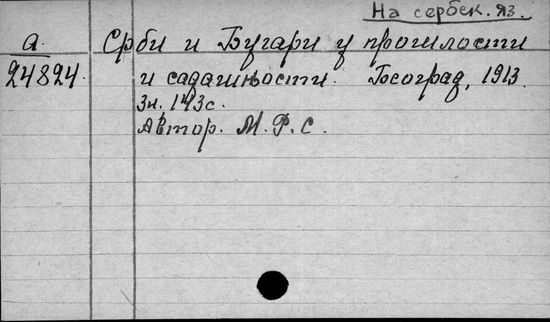 На сербск. яз.
а
24824.
Срби и Бугари у прошлости
и садашњости. Београд, 1913.
Зн. 143с.
Автор. М. Р. С.